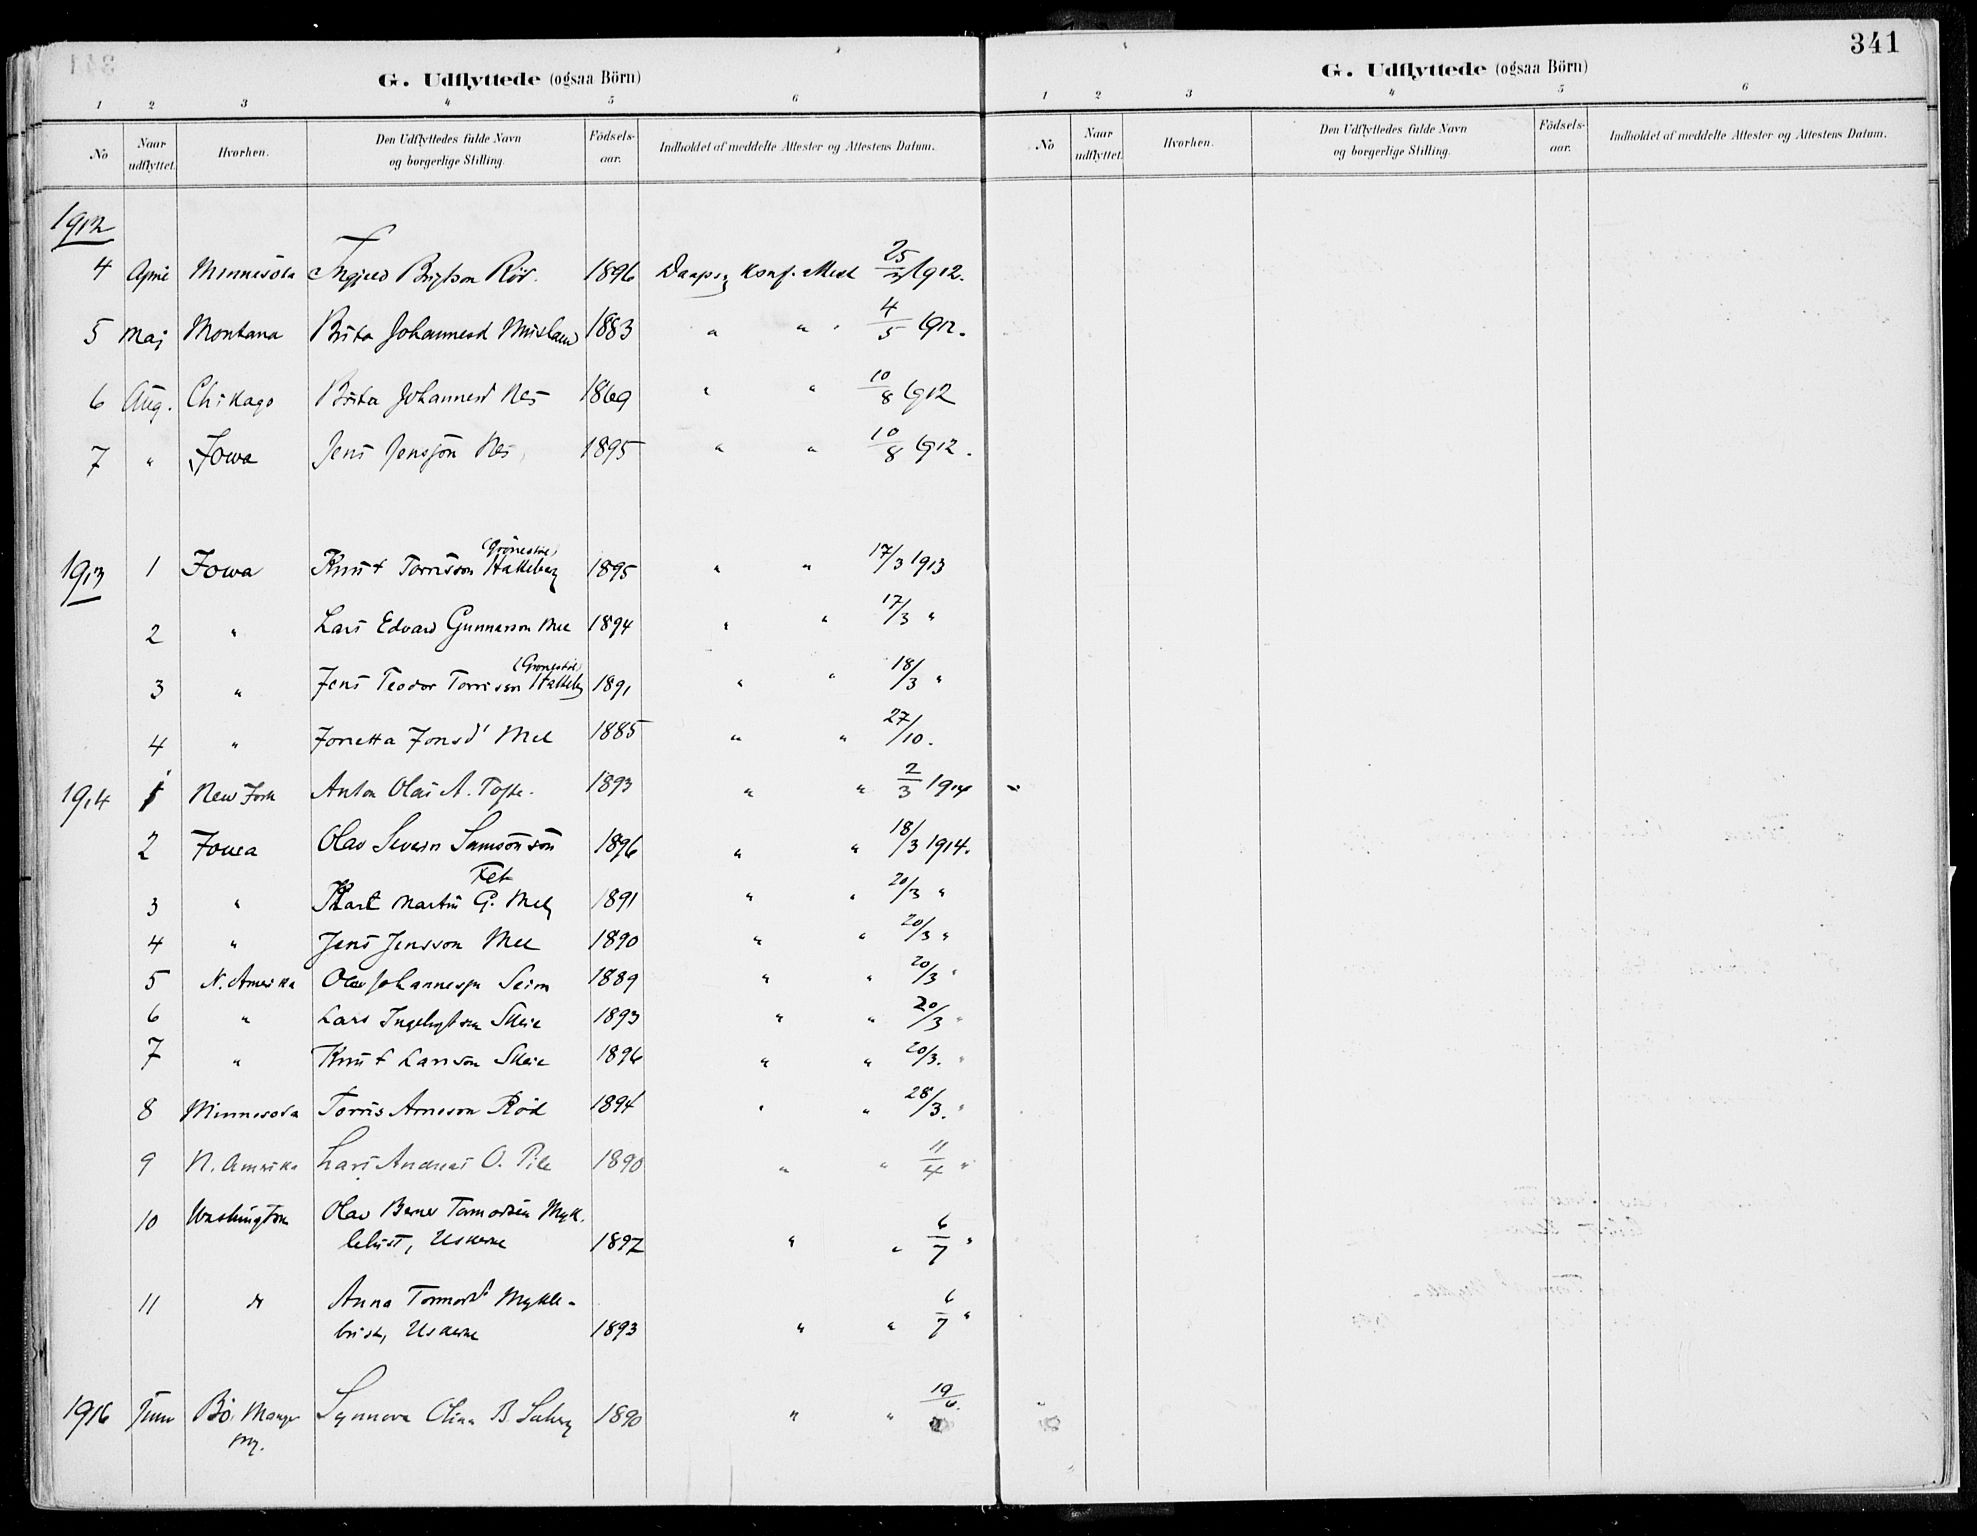 G. Udflyttede (ogsaa Börn)
1 2 3 4 5 6
No Naar udflyttet. Hvorhen. Den Udflyttedes fulde Navn og borgerlige Stilling. Födsels-aar. Indholdet af meddelte Attester og Attestens Datum.
1912
4 April Minnesota Røs. 1896 Daaps og Konf. attest 25/3 1912.
5 Maj Montana Brita Johannesd 1883 " " 4/5 1912.
6 Aug. Chikago Brita Johannesd Nes 1869 " " 10/8 1912
7 " Iowa Jens Jensson Nes 1895 " " 10/8 1912.
1913 1 Iowa Knut Torrisson Halleberg 1895 " " 17/3 1913
2 " Lars Edvard Gunnarson Mel 1894 " " 17/3 "
3 " Jens Teodor Torrisson 1891 " " 18/3 "
4 " Jonetta Jonsd' Mel 1885 " " 27/10.
1914 1 New York Anton Olai A. Tofte. 1893 " " 2/3 1914
2 Iowa Olav Severin Samsonson 1896 " " 18/3 1914.
Fet
3 " Karl Martin G. Mel 1891 " " 20/3 "
4 " Jens Jensson Mel 1890 " " 20/3 "
5 N. Amerika Olav Johannessn Seim 1889 " " 20/3 "
6 " Lars Skeie 1893 " " 20/3 "
7 " Knut Larsson Skeie 1896 " " 20/3. "
8 Minnesota Torris Arneson Röd 1894 " " 28/3. "
9 N. Amerika Lars Andreas O. 1890 " " 11/4 "
10 Washington Olav Berner Tormodsen Myk-
lebust, Uskerne 1897 " " 6/7 "
11 do Anna Tormodsd Mykle-
bust, Uskerne 1893 " " 6/7 "
1916 Juni Bø, Manger Synnøva Olina B 1890 " " 19/6.
341
G. Udflyttede (ogsaa Börn)
1 2 3 4 5 6
No Naar udflyttet. Hvorhen. Den Udflyttedes fulde Navn og borgerlige Stilling. Födsels-aar. Indholdet af meddelte Attester og Attestens Datum.